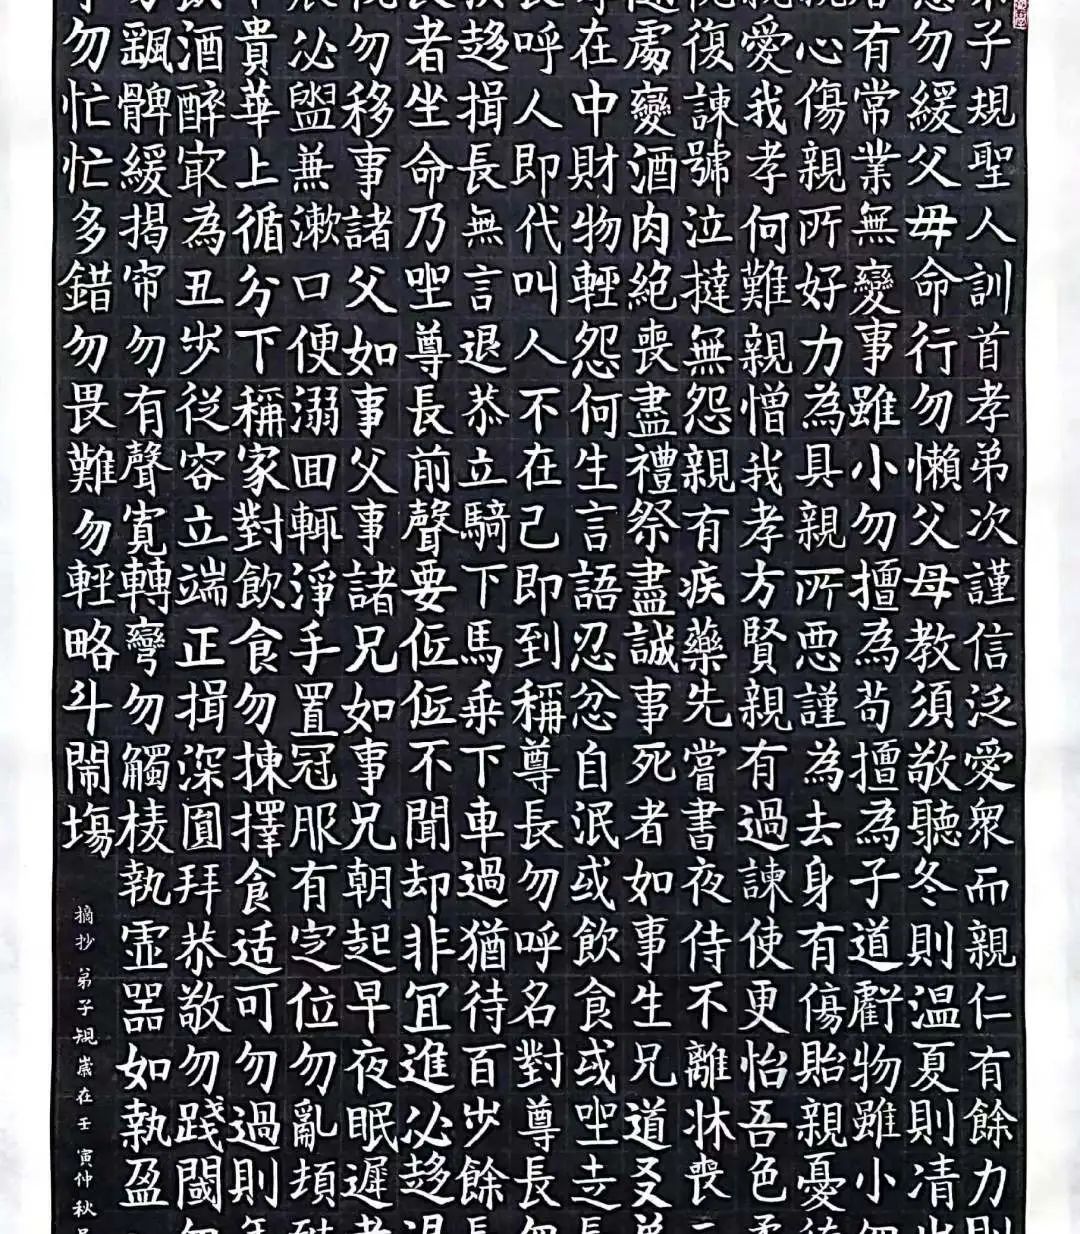 弟子規聖人訓首孝弟次謹信泛愛眾而親仁有餘力則
勿緩父毋命行勿懶父母教須敬聽冬則温夏則凊出
居有常業無變事雖小勿擅為苟擅為子道虧物雖小勿
親心傷親所好力為具親所惡謹為去身有傷貽親憂德
親愛我孝何難親憎我孝方賢親有過諫使更怡吾色柔
悅復諫號泣撻無怨親有疾藥先嘗晝夜侍不離牀喪三
處變酒肉絕喪盡禮祭盡誠事死者如事生兄道友弟
孝在中財物輕怨何生言語忍忿自泯或飲食或坐走長
長呼人即代叫人不在己即到稱尊長勿呼名對尊長勿
疾趨揖長無言退恭立騎下馬乘下車過猶待百步餘長
長者坐命乃坐尊長前聲要低低不聞却非宜進必趨退
視勿移事諸父如事父事諸兄如事兄朝起早夜眠遲老
晨必盥兼漱口便溺回輒淨手置冠服有定位勿亂頓致
不貴華上循分下稱家對飲食勿揀擇食适可勿過則年
飲酒醉最為丑步從容立端正揖深圓拜恭敬勿踐閾勿
勿颻髀緩揭帘勿有聲寬轉彎勿觸棱執虛器如執盈
勿忙忙多錯勿畏難勿輕略斗鬧場
摘抄弟子規歲在壬寅仲秋